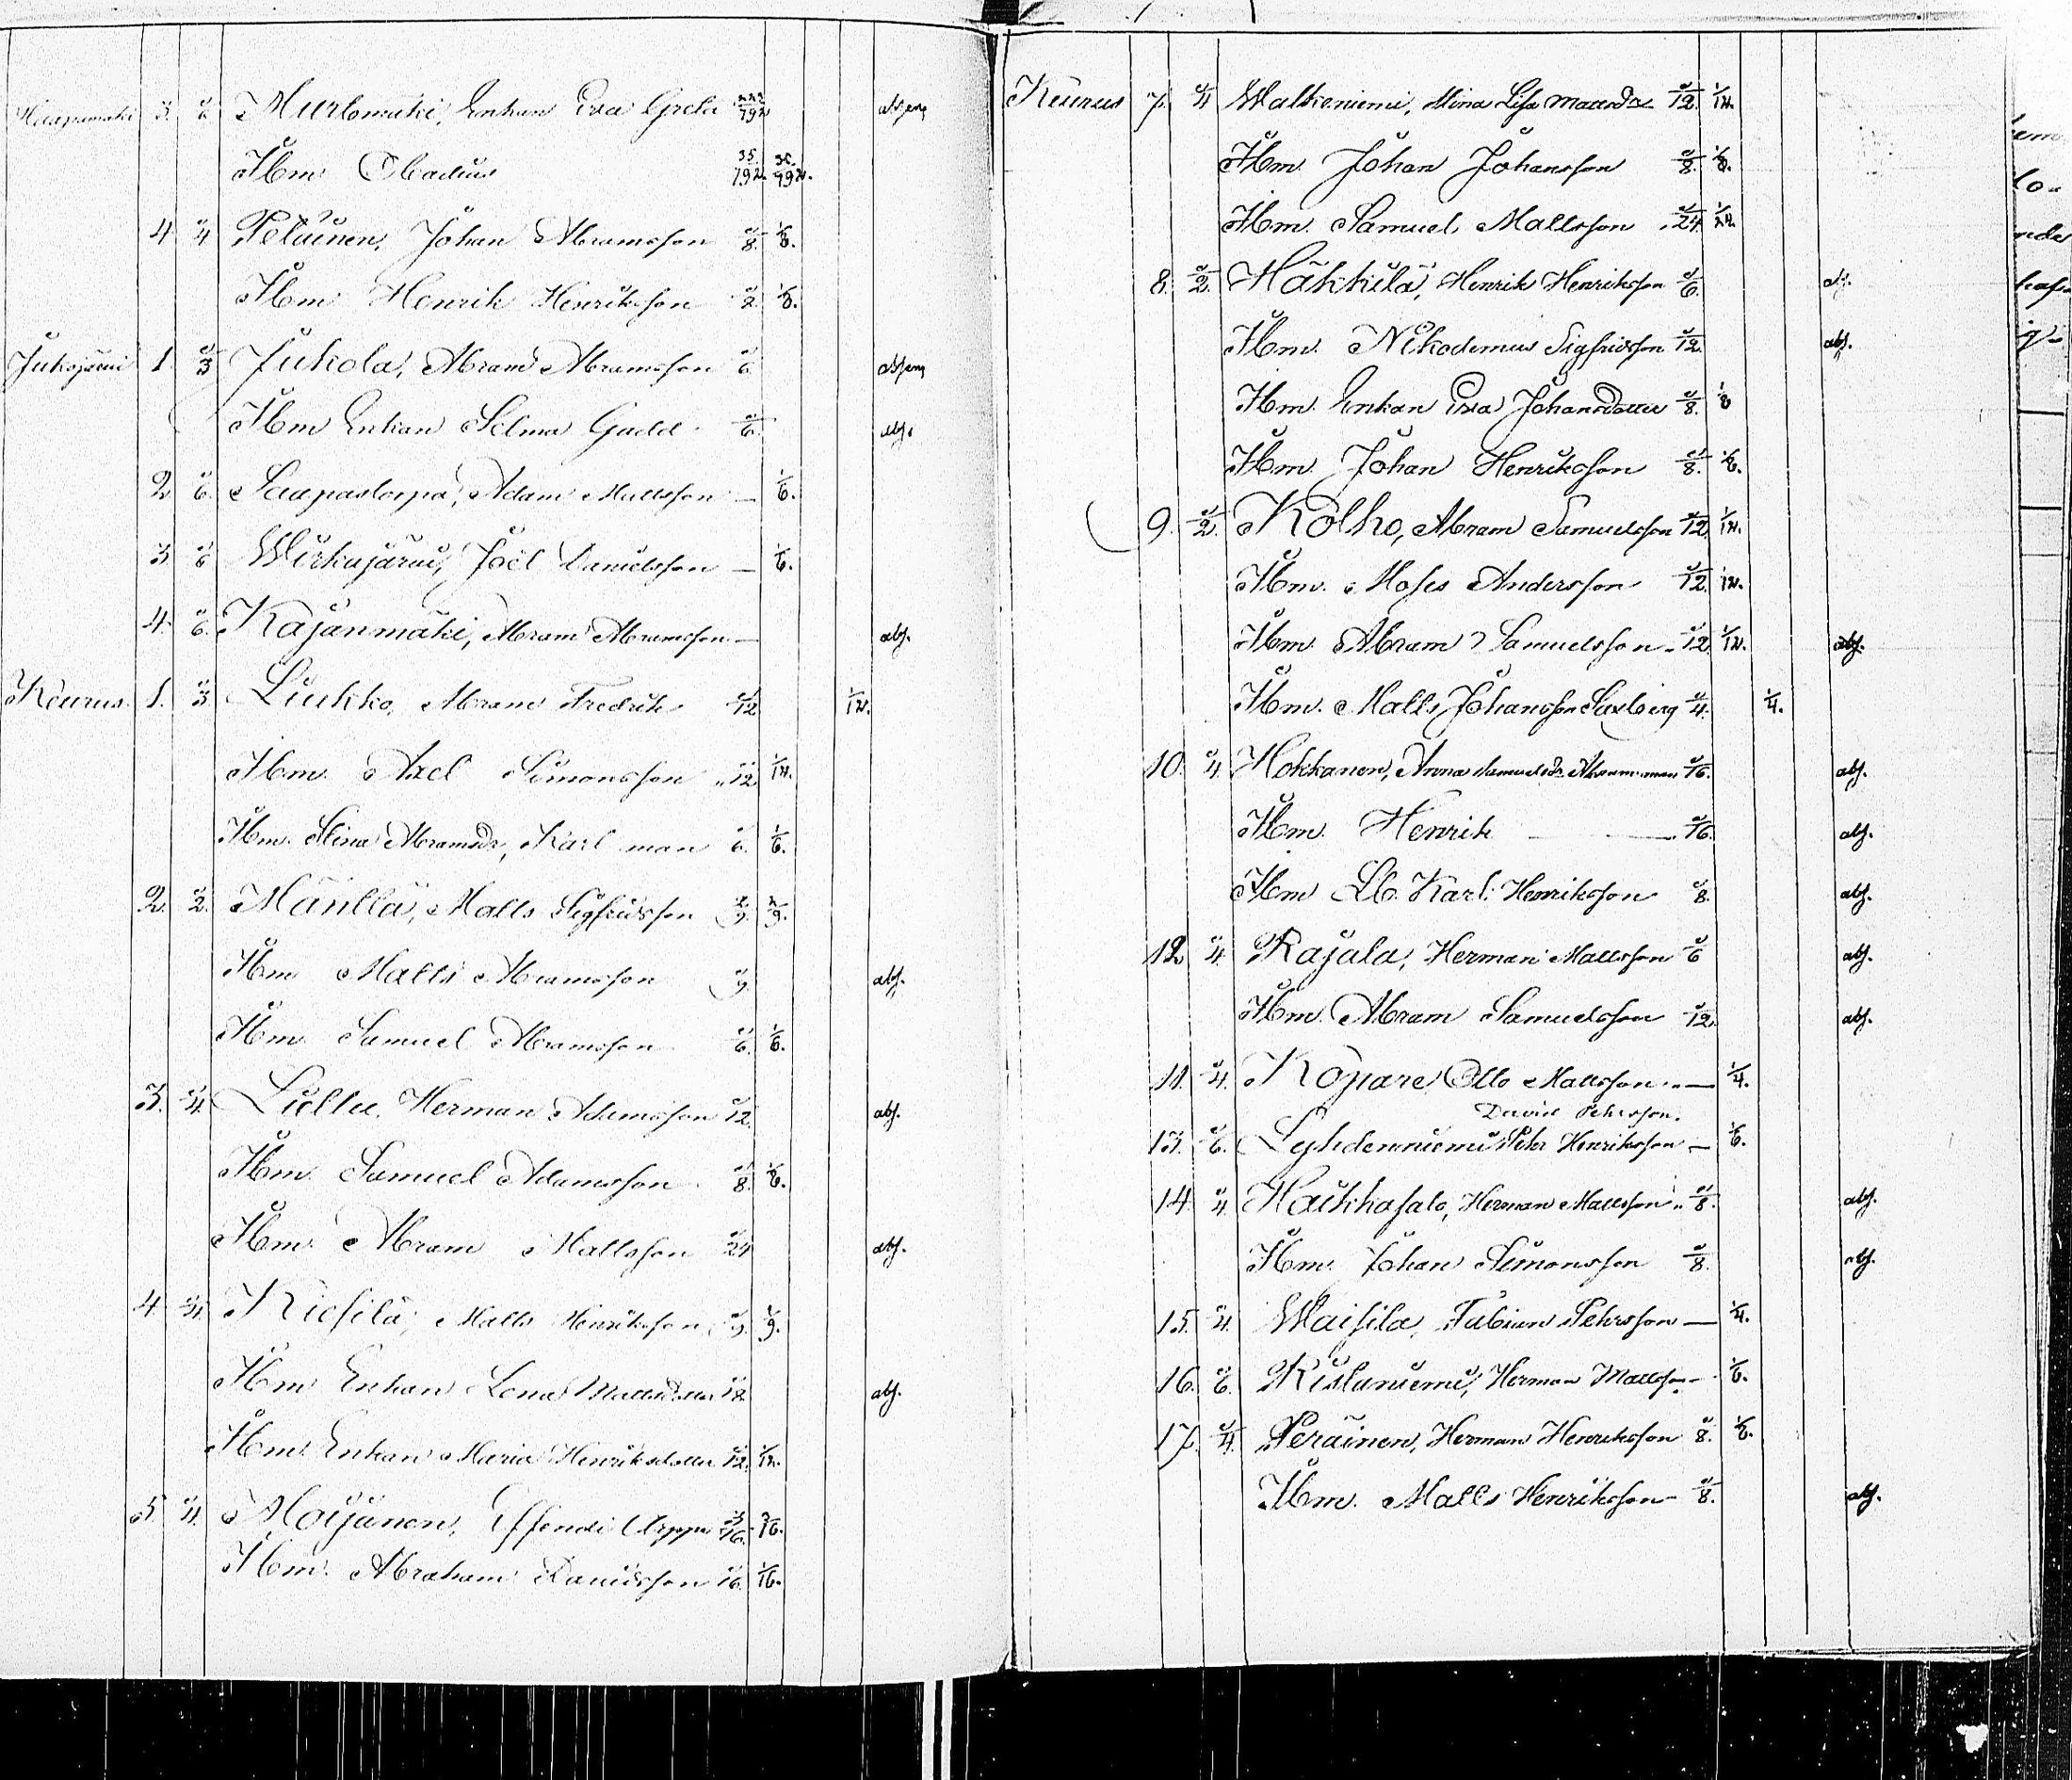 Haapamäki 3. Murtomäki, Enkan Eva Greta 192 absens
Ibm Obadius 35/192. 35/192.
4 1/4 Peläinen, Johan Abramsson 1/8. 1/8.
Ibm Henrik Henriksson 1/8.
Jukojärvi 1. 1/3 Jukola, Abram Abramsson 1/6 absens
Ibm Enkan Selma Gadd 1/6. abs.
2. 1/6. Saapastorpa, Adam Mattsson — 1/6.
3. 1/6 Wirkajärvi, Joël Danielsson — 1/6.
4. 1/6. Kajanmäki, Abram Abramsson — abs.
Keurus. 1. 1/3 Liukko, Abram Fredrik 1/12 1/12.
Ibm. Axel Simonsson 1/12 1/12.
Ibm. Stina Abramsdr, Karl man 1/6. 1/6.
2. 1/2. Mänttä, Matts Sigfridsson 2/9. 2/9.
Ibm Matts Abramsson 1/9. abs.
Ibm Samuel Abramsson 1/6. 1/6.
3. 1/4. Lielu, Herman Adamsson 1/12. abs.
Ibm. Samuel Adamsson 1/8. 1/8.
Ibm. Abram Mattsson 1/24 abs.
4 1/4. Riesilä, Matts Henriksson 1/9. 1/9.
Ibm Enkan Lena Mattsdotter 1/12. abs.
Ibm. Enkan Maria Henriksdotter 1/12. 1/12.
5. 1/4. Moijanen, Effendi Arppe 3/16. 3/16.
Ibm. Abraham Davidsson 1/16. 1/16.
Keurus 7. 1/4 Walkeniemi, Mina Lisa Mattsdr 1/12. 1/12.
Ibm. Johan Johansson 1/8. 1/8.
Ibm. Samuel Mattsson 1/24. 1/24.
8. 1/2. Häkkilä, Henrik Henriksson 1/6. abs.
Ibm. Nikodemus Sigfridsson 1/12. abs.
Ibm. Enkan Eva Johansdotter 1/8. 1/8
Ibm. Johan Henriksson 1/8. 1/8.
9. 1/2. Kolho, Abram Samuelsson 1/12. 1/12.
Ibm. Moses Andersson 1/12. 1/12.
Ibm. Abram Samuelsson 1/12. 1/12. abs.
Ibm. Matts Johansson Saxberg 1/4. 1/4.
10. 1/4. Hokkanen, Anna Samuelsdr Abram man 1/16. abs.
Ibm. Henrik — 1/16. abs.
Ibm Lb. Karl Henriksson 1/8. abs.
12. 1/4. Rajala, Herman Mattsson 1/6 abs.
Ibm. Abram Samuelsson 1/12. abs.
11. 1/4. Kopare, Otto Mattsson — 1/4.
David Pehrsson.
13. 1/6. Lyhdenniemi Pehr Henriksson — 1/6.
14. 1/4. Haukkasalo, Herman Mattsson 1/8. abs.
Ibm. Johan Simonsson 1/8. abs.
15. 1/4. Waisila, Fabian Pehrsson — 1/4.
16. 1/6. Ristaniemi, Herman Mattsson — 1/6.
17. 1/4. Peräinen, Herman Henriksson 1/8. 1/8.
Ibm. Matts Henriksson 1/8. abs.